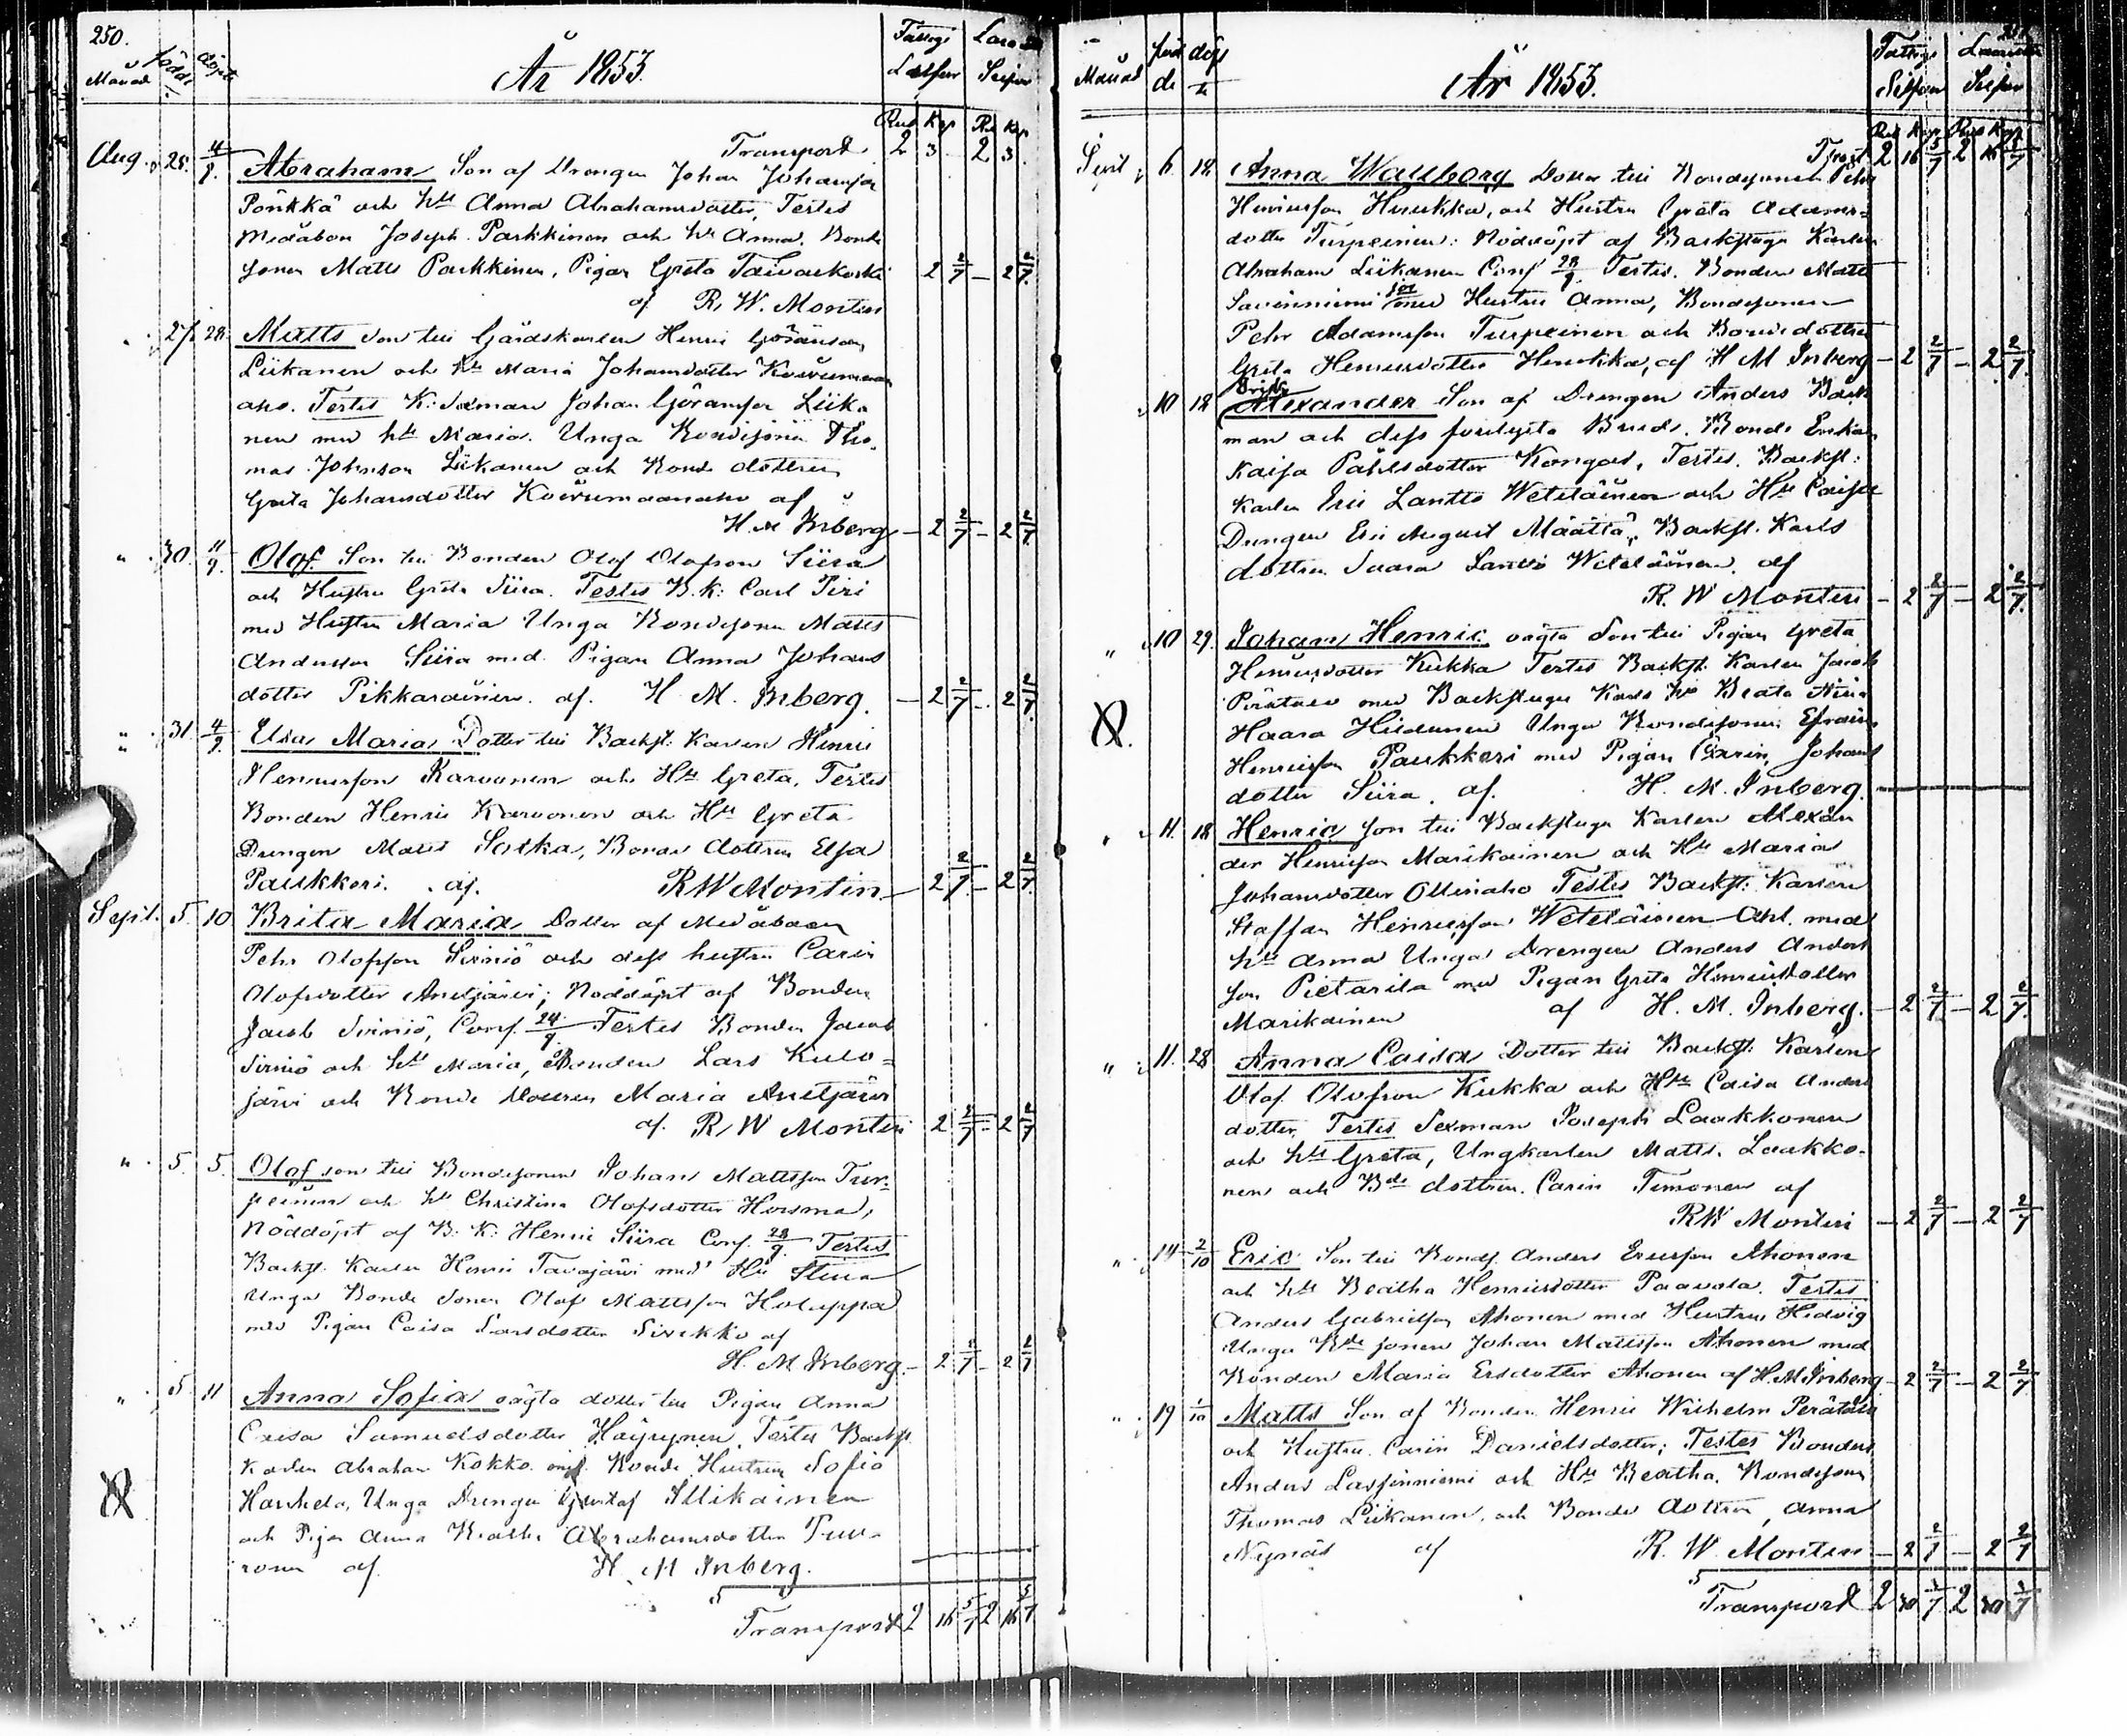 250.
Månad
Födde
döpte
År 1853.
Fattige
Laza
Rub Kop Rub Kop
Transport 2 3 2 3
Aug. 25. 4/9. Abraham Son af Drengen Johan Johansson
Pönkkä och Hu Anna Abrahamsdotter, Testes
Medåboen Joseph Parkkinen och Hu Anna, Bonde
sonen Matts Parkkinen, Pigan Greta Taivalkoski 2 2/7 – 2 2/7
af R. W. Montin
" 27. 28. Matts Son till Gårdskarlen Henric Göransson
Liikanen och Hu Maria Johansdotter
aho. Testes K: Sexman Johan Göransson Liika
nen med hu Maria. Unga Bondesonen Tho
mas Johnson Liikanen och Bonde dottren
Greta Johansdotter af
H. M Inberg – 2 2/7 – 2 2/7
" 30. 11/9. Olof Son till Bonden Olof Olofson Siira
och Hustru Greta Siira. Testes B. K: Carl Piri
med Hustru Maria Unga Bondesonen Matts
Andersson Siira med Pigan Anna Johans
dotter Pikkarainen. af. H. M. Inberg. – 2 2/7 – 2 2/7
" 31. 4/9. Elsa Maria Dotter till Backst: Karlen Henric
Henricsson Karvonen och Hu Greta, Testes
Bonden Henric Karvonen och Hu Greta
Drengen Matts Sotka, Bonde dottren Elsa
Paukkeri. af. R W Montin – 2 2/7 – 2 2/7
Sept. 5. 10 Brita Maria Dotter af Medåboen
Pehr Olofsson Sirniö och dess hustru Carin
Olofsdotter Anetjärvi; Nöddöpt af Bonden
Jacob Sirniö, Conf. 24/9 Testes Bonden Jacob
Sirniö och hu Maria, Bonden Lars Kulo=
järvi och Bonde Dottren Maria Anetjärvi
af. R W Montin 2 2/7 – 2 2/7
" 5. 5. Olof son till Bondesonen Johan Mattsson Tur=
peinen och hu Christina Olofsdotter Hersma,
Nöddöpt af B: K: Henric Siira Conf. 28/9. Testes
Backst. Karlen Henric Tavajärvi med Hu Stina
Unga Bonde Sonen Olof Mattsson Holappa
med Pigan Caisa Larsdotter Sirkko af
H. M Inberg. – 2 2/7 – 2 2/7
" 5 11 Anna Sofia oägta dotter till Pigan Anna
Caisa Samuelsdotter Häyrynen, Testes Backst
Karlen Abraham Kokko Bonde Hustrun Sofia
Haukela, Unga Drengen Gustaf Illikainen
och Pigan Anna Beatha Abrahamsdotter Tuo
ronen af. H. M Inberg.
Transport 2 16 5/7 2 16 5/7
251
Månad
föd de
döpte
År 1853.
Fattige
Rub Kop Rub Kop
Trpt. 2 16 5/7 2 16 5/7
Sept 6 18 Anna Wallborg Dotter till Bondesonen Pehr
Henricsson Heikka, och Hustru Greta Adams=
dotter Turpeinen: Nöddöpt af Backstuge Karlen
Abraham Liikanen Conf 28/9. Testes. Bonden Matts
Savinniemi med Hustru Anna, Bondesonen
Pehr Adamsson Turpeinen och Bondedottren
Greta Henricsdotter Heikka, af H M Inberg – 2 2/7 – 2 2/7
" 10 18 Alexander Son af Drengen Anders Back
man och dess förlofvade Brud, Bonde Enkan
Kaisa Påhlsdotter Kongas, Testes. Backst:
Karlen Eric Lantto Weteläinen och Hu Caisa
Drengen Eric August Määttä, Backst. Karls
dottren Saara Lantto Weteläinen. af
R. W Montin – 2 2/7 – 2 2/7
" 10 29. Johan Henric oägta Son till Pigan Greta
Henricsdotter Kukka Testes Backst. Karlen Jacob
Perätalo med Backstuge Karls hu Beata Stina
Haara Hiltunen Unga Bondesonen Efraim
Henricsson Paukkeri med Pigan Carin Johans
dotter Siira. af. H. M. Inberg.
" 11. 18 Henric Son till Backstuge Karlen Alexan
der Henricsson Marikainen och Hu Maria
Johansdotter Ollinaho Testes Backst: Karlen
Staffan Heinricsson Weteläinen Ahl. med
hu Anna Unga Drengen Anders Anders
son Pietarila med Pigan Greta Henricsdotter
Marikainen af H. M. Inberg. – 2 2/7 – 2 2/7
" 11. 28 Anna Caisa Dotter till Backst: Karlen
Olof Olofson Kukka och Hu Caisa Anders
dotter, Testes Sexman Joseph Laakkonen
och hu Greta, Ungkarlen Matts. Laakko-
nen och Bde dottren. Carin Timonen af
RW Montin – 2 2/7 – 2 2/7
" 14 2/10 Eric Son till Bonds. Anders Ericsson Ahonen
och hu Beatha Henricsdotter Paavola. Testes
Anders Gabrielsson Ahonen med Hustru Hedvig
Unga Bde sonen Johan Mattsson Ahonen med
Bonden Maria Ersdotter Ahonen af H. M. Inberg – 2 2/7 – 2 2/7
" 19 1/10 Matts Son af Bonden Henric Wilhelm Perätalo
och Hustru Carin Danielsdotter; Testes Bonden
Anders Lassinniemi och Hu Beatha. Bondesonen
Thomas Liikanen, och Bonde dottren, Anna
Nynäs af R. W. Montin – 2 2/7 – 2 2/7
Transport 2 30 3/7 2 30 3/7